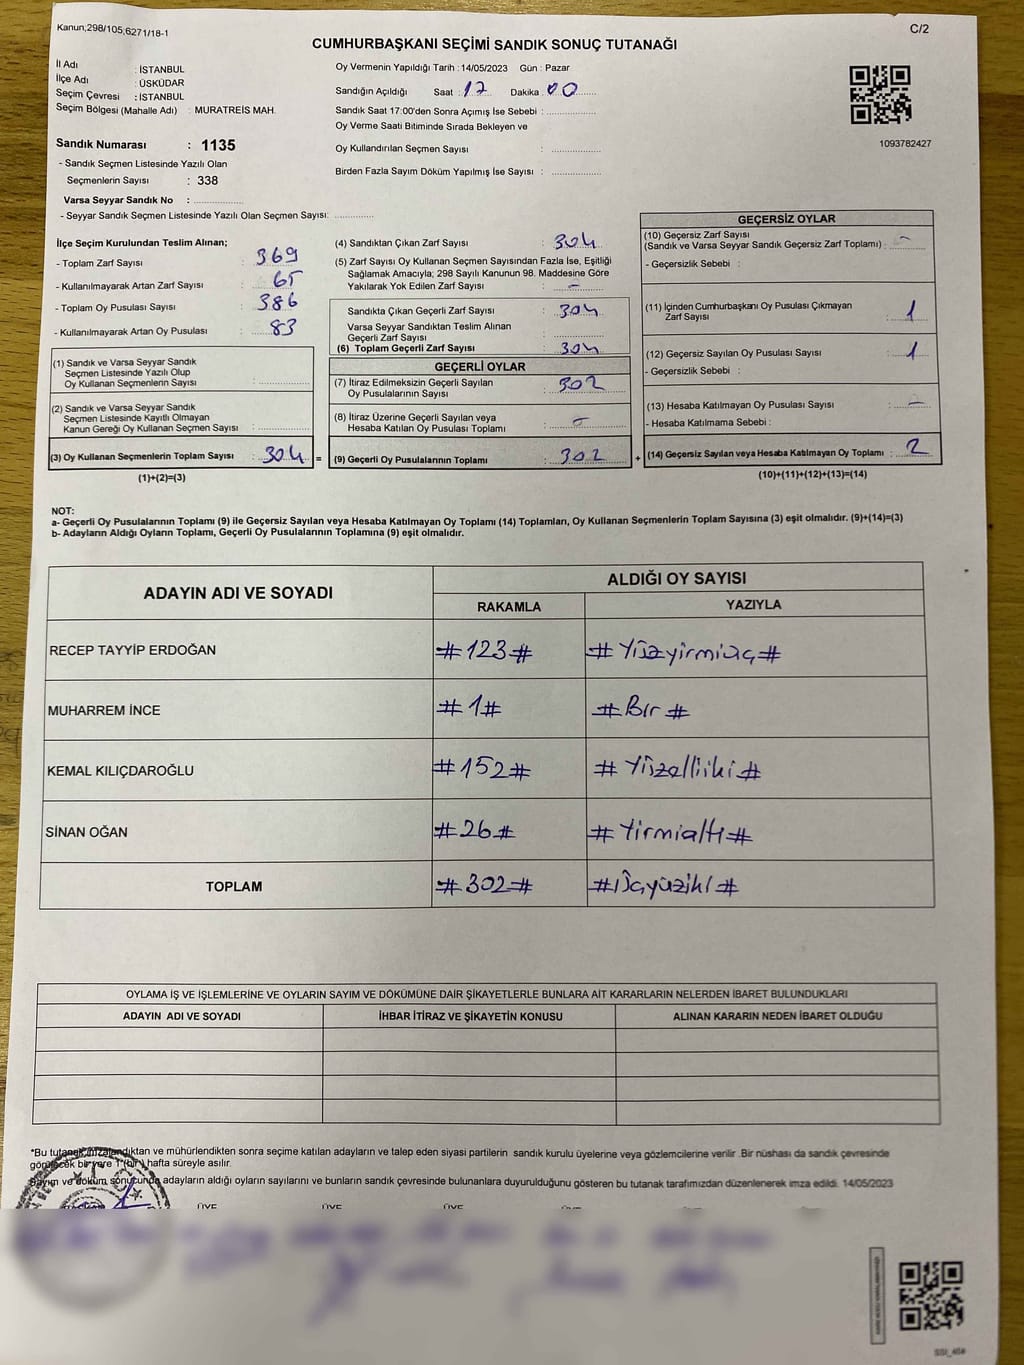 Kanun,298/105,6271/18-1
C/2
CUMHURBAŞKANI SEÇİMİ SANDIK SONUÇ TUTANAĞI
İl Adı : İSTANBUL
İlçe Adı : ÜSKÜDAR
Seçim Çevresi : İSTANBUL
Seçim Bölgesi (Mahalle Adı) : MURATREİS MAH.
Oy Vermenin Yapıldığı Tarih : 14/05/2023 Gün : Pazar
Sandığın Açıldığı Saat : 17 Dakika : 00
Sandık Saat 17:00'den Sonra Açımış İse Sebebi :
Oy Verme Saati Bitiminde Sırada Bekleyen ve
Oy Kullandırılan Seçmen Sayısı :
Birden Fazla Sayım Döküm Yapılmış İse Sayısı :
1093782427
Sandık Numarası : 1135
- Sandık Seçmen Listesinde Yazılı Olan
Seçmenlerin Sayısı : 338
Varsa Seyyar Sandık No :
- Seyyar Sandık Seçmen Listesinde Yazılı Olan Seçmen Sayısı:
İlçe Seçim Kurulundan Teslim Alınan;
- Toplam Zarf Sayısı : 369
- Kullanılmayarak Artan Zarf Sayısı : 65
- Toplam Oy Pusulası Sayısı : 386
- Kullanılmayarak Artan Oy Pusulası : 83
(1) Sandık ve Varsa Seyyar Sandık
Seçmen Listesinde Yazılı Olup
Oy Kullanan Seçmenlerin Sayısı :
(2) Sandık ve Varsa Seyyar Sandık
Seçmen Listesinde Kayıtlı Olmayan
Kanun Gereği Oy Kullanan Seçmen Sayısı :
(3) Oy Kullanan Seçmenlerin Toplam Sayısı : 304 =
(1)+(2)=(3)
(4) Sandıktan Çıkan Zarf Sayısı : 304
(5) Zarf Sayısı Oy Kullanan Seçmen Sayısından Fazla İse, Eşitliği
Sağlamak Amacıyla; 298 Sayılı Kanunun 98. Maddesine Göre
Yakılarak Yok Edilen Zarf Sayısı : -
Sandıkta Çıkan Geçerli Zarf Sayısı : 304
Varsa Seyyar Sandıktan Teslim Alınan
Geçerli Zarf Sayısı :
(6) Toplam Geçerli Zarf Sayısı : 304
GEÇERLİ OYLAR
(7) İtiraz Edilmeksizin Geçerli Sayılan
Oy Pusulalarının Sayısı : 302
(8) İtiraz Üzerine Geçerli Sayılan veya
Hesaba Katılan Oy Pusulası Toplamı : -
(9) Geçerli Oy Pusulalarının Toplamı : 302 +
GEÇERSİZ OYLAR
(10) Geçersiz Zarf Sayısı
(Sandık ve Varsa Seyyar Sandık Geçersiz Zarf Toplamı) : -
- Geçersizlik Sebebi :
(11) İçinden Cumhurbaşkanı Oy Pusulası Çıkmayan
Zarf Sayısı : 1
(12) Geçersiz Sayılan Oy Pusulası Sayısı : 1
- Geçersizlik Sebebi :
(13) Hesaba Katılmayan Oy Pusulası Sayısı : -
- Hesaba Katılmama Sebebi :
(14) Geçersiz Sayılan veya Hesaba Katılmayan Oy Toplamı : 2
(10)+(11)+(12)+(13)=(14)
NOT:
a- Geçerli Oy Pusulalarının Toplamı (9) ile Geçersiz Sayılan veya Hesaba Katılmayan Oy Toplamı (14) Toplamları, Oy Kullanan Seçmenlerin Toplam Sayısına (3) eşit olmalıdır. (9)+(14)=(3)
b- Adayların Aldığı Oyların Toplamı, Geçerli Oy Pusulalarının Toplamına (9) eşit olmalıdır.
ADAYIN ADI VE SOYADI
ALDIĞI OY SAYISI
RAKAMLA YAZIYLA
RECEP TAYYİP ERDOĞAN #123# #Yüzyirmiüç#
MUHARREM İNCE #1# #Bir#
KEMAL KILIÇDAROĞLU #152# #Yüzelliiki#
SİNAN OĞAN #26# #Yirmialtı#
TOPLAM #302# #Üçyüziki#
OYLAMA İŞ VE İŞLEMLERİNE VE OYLARIN SAYIM VE DÖKÜMÜNE DAİR ŞİKAYETLERLE BUNLARA AİT KARARLARIN NELERDEN İBARET BULUNDUKLARI
ADAYIN ADI VE SOYADI İHBAR İTİRAZ VE ŞİKAYETİN KONUSU ALINAN KARARIN NEDEN İBARET OLDUĞU
*Bu tutanak imzalandıktan ve mühürlendikten sonra seçime katılan adayların ve talep eden siyasi partilerin sandık kurulu üyelerine veya gözlemcilerine verilir. Bir nüshası da sandık çevresinde
görülecek bir yere 1 (bir) hafta süreyle asılır.
Sayım ve döküm sonucunda adayların aldığı oyların sayılarını ve bunların sandık çevresinde bulunanlara duyurulduğunu gösteren bu tutanak tarafımızdan düzenlenerek imza edildi. 14/05/2023
ÜYE ÜYE ÜYE